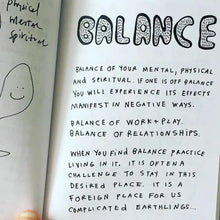 physical
mental
spiritual
BALANCE
BALANCE OF YOUR MENTAL, PHYSICAL
AND SPIRITUAL. IF ONE IS OFF BALANCE
YOU WILL EXPERIENCE ITS EFFECTS
MANIFEST IN NEGATIVE WAYS.
BALANCE OF WORK + PLAY.
BALANCE OF RELATIONSHIPS.
WHEN YOU FIND BALANCE PRACTICE
LIVING IN IT. IT IS OFTEN A
CHALLENGE TO STAY IN THIS
DESIRED PLACE. IT IS A
FOREIGN PLACE FOR US
COMPLICATED EARTHLINGS...